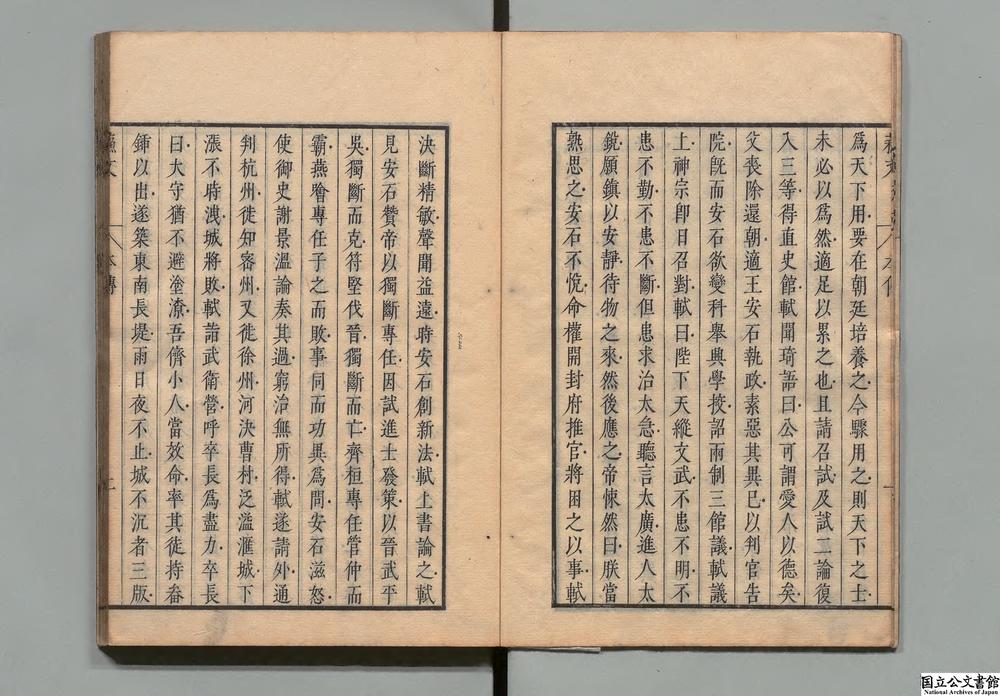 爲天下用要在朝廷培養之今驟用之則天下之士
未必以爲然適足以累之也且請召試及試二論復
入三等得直史館軾聞琦語曰公可謂愛人以德矣
父喪除還朝適王安石執政素惡其異已以判官告
院旣而安石欲變科舉興學挍詔兩制三館議軾議
上神宗卽日召對軾曰陛下天縱文武不患不明不
患不勤不患不斷但患求治太急聽言太廣進人太
銳願鎮以安靜待物之來然後應之帝悚然曰朕當
熟思之安石不悅命權開封府推官將困之以事軾
決斷精敏聲聞益遠時安石創新法軾上書論之軾
見安石贊帝以獨斷專任因試進士發策以晉武平
吳獨斷而克符堅伐晉獨斷而亡齊桓專任管仲而
霸燕噲專任子之而敗事同而功異爲問安石滋怒
使御史謝景溫論奏其過窮治無所得軾遂請外通
判杭州徙知密州又徙徐州河決曹村泛溢滙城下
漲不時洩城將敗軾詣武衛營呼卒長爲盡力卒長
曰大守猶不避塗潦吾儕小人當效命率其徒持畚
鍤以出遂築東南長堤雨日夜不止城不沉者三版
蘇文 本傳
国立公文書館
National Archives of Japan